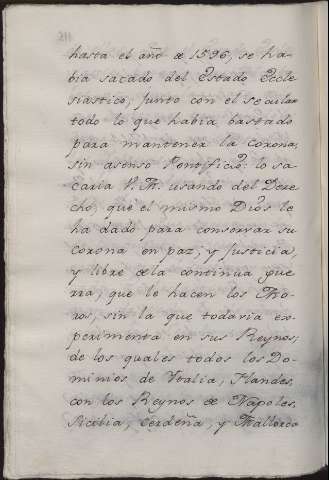 hasta el año de 1596, se ha-
bia sacado del Estado Ecle
siastico, junto con el secular
todo lo que habia bastado
para mantener la corona,
sin asenso Pontificio: lo sa-
caria V. M. usando del Dere
cho, que el mismo Dios le
ha dado para conservar su
corona en paz, y Justicia,
y libre de la continua gue
rra, que le hacen los Mo-
ros, sin la que todavia ex-
perimenta en sus Reynos;
de los quales todos los Do-
minios de Ytalia, Flandes,
con los Reynos de Napoles,
Sicilia, Cerdeña, y Mallorca